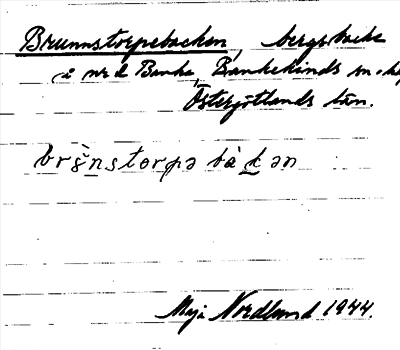 Brunnstorpebacken, bergsbacke
i nv d Banke, Bankekinds sn o hd
Östergötlands län.
brs̀nstorpə bàkən
Maja Nordlund 1944.